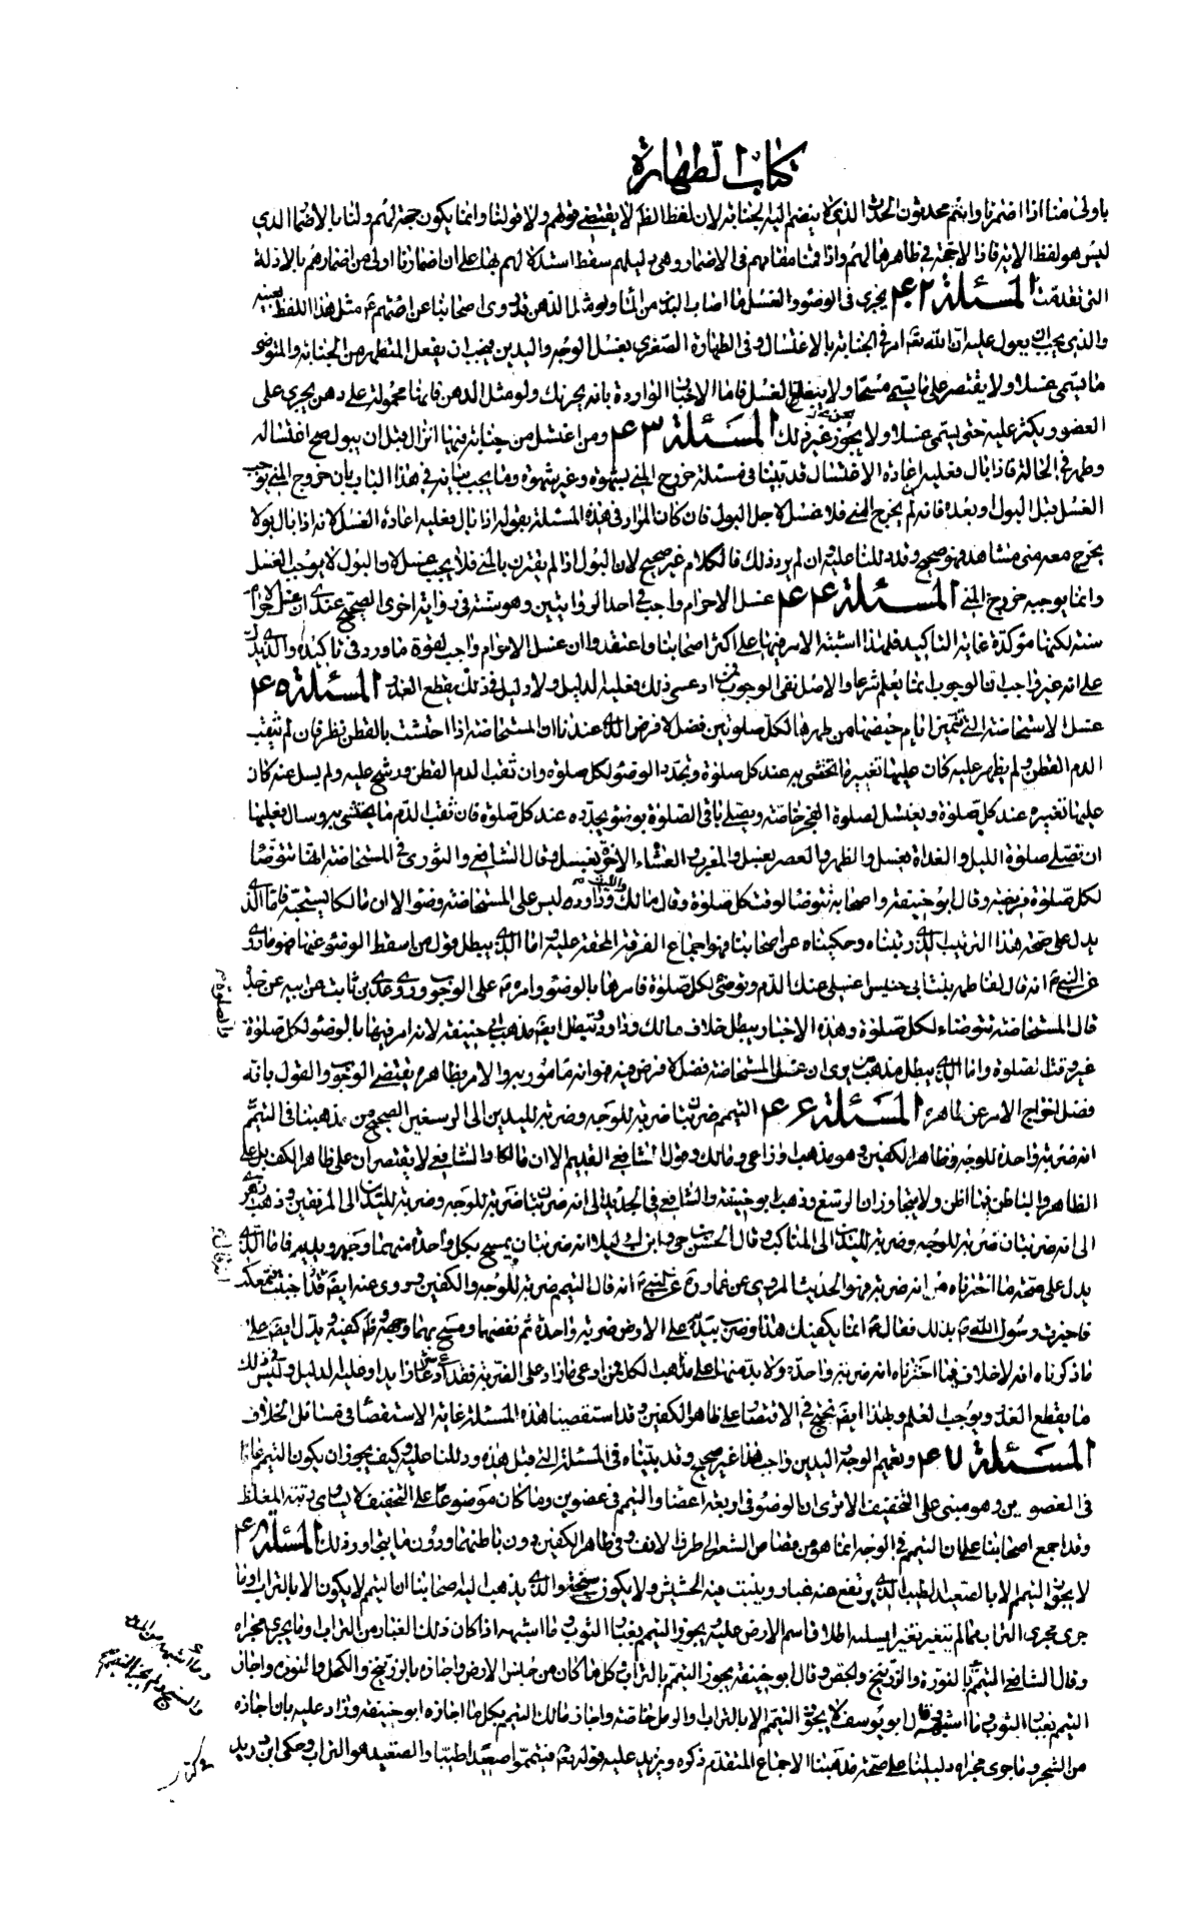 كتاب الطهارة
باولى منا اذا اضمرنا وانتم محدثون الحدث الذي لا ينضم اليه الجنابة لان لفظ الظ لا يقتضي قولهم ولا قولنا وانما يكون حجة لهم ولنا بالاضمار الذي
ليس هو لفظ الاية فاذا لا حجة في ظاهرها لهم واذا قمنا مقامهم في الاضمار وهى دليلهم سقط استدلالهم بها على ان اضمارنا اولى من اضمارهم بالادلة
التي تقدمت المسئلة ۴۲ يجزى في الوضوء والغسل ما اصاب البدن من الماء ولو مثل الدهن قد روى اصحابنا عن ائمتهم ع مثل هذا اللفظ بعينه
والذي يجب ان يعول عليه ان الله تعالى امر في الجنابة بالاغتسال وفي الطهارة الصغرى بغسل الوجه واليدين فيجب ان يفعل المتطهر من الجنابة والمتوضى
ما يسمى غسلا ولا يقتصر على ما يسمى مسحا ولا يبلغ الغسل فاما الاخبار الواردة بانه يجزيك ولو مثل الدهن فانها محمولة على دهن يجرى على
العضو ويكثر عليه حتى يسمى غسلا ولا يجوز غير ذلك المسئلة ۴۳ ومن اغتسل من جنابة فيها انزال قبل ان يبول صح اغتساله
وطهر في الحالة فاذا بال فعليه اعادة الاغتسال قد بينا في مسئلة خروج المني بشهوة وغير شهوة وما يجب بيانه في هذا الباب بان خروج المني يوجب
الغسل قبل البول او بعده فانه لم يخرج المني فلا غسل لاجل البول فان كان المراد في هذه المسئلة بقوله اذا بال فعليه اعادة الغسل لانه اذا بال بولا
يخرج معه مني مشاهد فهو صحيح وقد دللنا عليه وان لم يرد ذلك فالكلام غير صحيح لان البول اذا لم يقترن بالمني فلا يجب غسل لان البول لا يوجب الغسل
وانما يوجبه خروج المني المسئلة ۴۴ غسل الاحرام واجب في احد الروايتين وهو سنة في رواية اخرى الصحيح عندى ان غسل الاحرام
سنة لكنها مؤكدة غاية التاكيد فلهذا اشتبه الامر فيها على اكثر اصحابنا واعتقدوا ان غسل الاحرام واجب لقوة ما ورد في تاكيده والذى يدل
على انه غير واجب ان الوجوب انما يعلم شرعا والاصل نفى الوجوب فمن ادعى ذلك فعليه الدليل ولا دليل في ذلك يقطع العذر المسئلة ۴۵
غسل الاستحاضة التي تتميز ايام حيضها من طهرها لكل صلوتين فضل لا فرض الذى عندنا ان المستحاضة اذا احتشت بالقطن نظر فان لم تثقب
الدم القطن ولم يظهر عليه كان عليها تغيير ما تحتشى به عند كل صلوة وتجدد الوضوء لكل صلوة وان ثقب الدم القطن ورشح عليه ولم يسل عنه كان
عليها تغييره عند كل صلوة وتغتسل لصلوة الفجر خاصة وتصلى باقى الصلوة بوضوء تجدده عند كل صلوة فان ثقب الدم ما يحتشى به وسال فعليها
ان تصلى صلوة الليل والغداة بغسل والظهر والعصر بغسل والمغرب والعشاء الاخرة بغسل وقال الشافعي والثورى في المستحاضة انها تتوضا
لكل صلوة فريضة وقال ابو حنيفة واصحابه تتوضا لوقت كل صلوة وقال مالك والليث م وداود ليس على المستحاضة وضوء الا ان مالكا يستحبه فاما الذى
يدل على صحة هذا الترتيب الذى رتبناه وحكيناه عن اصحابنا فهو اجماع الفرقة المحقة عليه واما الذى يبطل قول من اسقط الوضوء عنها فهو ما روى
عن النبي ع انه قال لفاطمة بنت ابى حنيس اغسلى عنك الدم وتوضئى لكل صلوة فامرها بالوضوء وامره ع على الوجوب وروى عدى بن ثابت عن ابيه عن جده
قال المستحاضة تتوضاء لكل صلوة وهذه الاخبار يبطل خلاف مالك وداود وتبطل ايضا مذهب ابى حنيفة لانه امر فيها بالوضوء لكل صلوة
غير وقت الصلوة واما الذى يبطل مذهب من يرى ان غسل المستحاضة فضل لا فرض فيه فهو انه مأمور به والامر بظاهره يقتضى الوجوب والقول بانه
فضل اخراج الامر عن ظاهره المسئلة ۴۶ التيمم ضربتان ضربة للوجه وضربة لليدين الى الرسغين الصحيح من مذهبنا في التيمم
انه ضربة واحدة للوجه وظاهر الكفين وهو مذهب اوزاعى ومالك وقول الشافعي القديم الا ان مالكا والشافعي لا يقتصران على ظاهر الكف بل على
الظاهر والباطن فيما اظن ولا يتجاوزان الرسغ وذهب ابو حنيفة والشافعي في الجديد الى انه ضربتان ضربة للوجه وضربة لليدين الى المرفقين وذهب الزهرى
الى انه ضربتان ضربة للوجه وضربة لليدين الى المناكب وقال الحسن بن حى وابن ابى ليلا انه ضربتان يمسح بكل واحدة منهما وجهه ويديه فاما الذى
يدل على صحة ما اخترناه من انه ضربة فهو الحديث المروى عن عمار عن النبى ع انه قال التيمم ضربة للوجه والكفين وروى عنه ايضا قال اجنبت فتمعكت
فاخبرت رسول الله ص بذلك فقال ع انما يكفيك هذا وضرب بيديه على الارض ضربة واحدة ثم نفضهما ومسح بهما وجهه وظاهر كفيه ويدل ايضا على
ما ذكرناه انه لا خلاف فيما اخترناه انه ضربة واحدة ولا بد منها على مذاهب الكل فمن ادعى ما زاد على الضربة فقد ادعا زايدا وعليه الدليل وليس في ذلك
ما يقطع العذر ويوجب العلم وبهذا ايضا نحتج في الاقتصار على ظاهر الكفين وقد استقصينا هذه المسئلة غاية الاستقصاء في مسائل الخلاف
المسئلة ۴۷ وتعميم الوجه واليدين واجب هذا غير صحيح وقد بيناه في المسئلة التى قبل هذه ودللنا عليه وكيف يجوز ان يكون التيمم عاما
في العضوين وهو مبنى على التخفيف الا ترى ان الوضوء في اربعة اعضاء والتيمم في عضوين وما كان موضوعا على التخفيف لا يساوى رتبة المغلظ
وقد اجمع اصحابنا على ان التيمم في الوجه انما هو من قصاص الشعر الى طرف الانف وفى ظاهر الكفين دون باطنهما ودون ما يتجاوز ذلك المسئلة ۴۸
لا يجزى التيمم الا بالصعيد الطيب الذى يرتفع عنه غبار وينبت فيه الحشيش ولا يكون سبخة والذى يذهب اليه اصحابنا ان التيمم لا يكون الا بالتراب او ما
جرى مجرى التراب مما لم يتغير تغيرا يسلبه اطلاق اسم الارض عليه ويجوز التيمم بغبار الثوب وما اشبهه اذا كان ذلك الغبار من التراب وما يجرى مجراه
وقال الشافعي التيمم بالنورة والزرنيخ والجص وقال ابو حنيفة يجوز التيمم بالتراب وكل ما كان من جنس الارض واجازه بالزرنيخ والكحل والنورة واجاز
التيمم بغبار الثوب وما اشبهه قال ابو يوسف لا يجزى التيمم الا بالتراب والرمل خاصة واجاز مالك التيمم بكل ما اجازه ابو حنيفة وزاد عليه بان اجازه
من الشجر وما جرى مجراه دليلنا على صحة مذهبنا الاجماع المتقدم ذكره ويزيد عليه قوله تعالى فتيمموا صعيدا طيبا والصعيد هو التراب وحكى ابن دريد